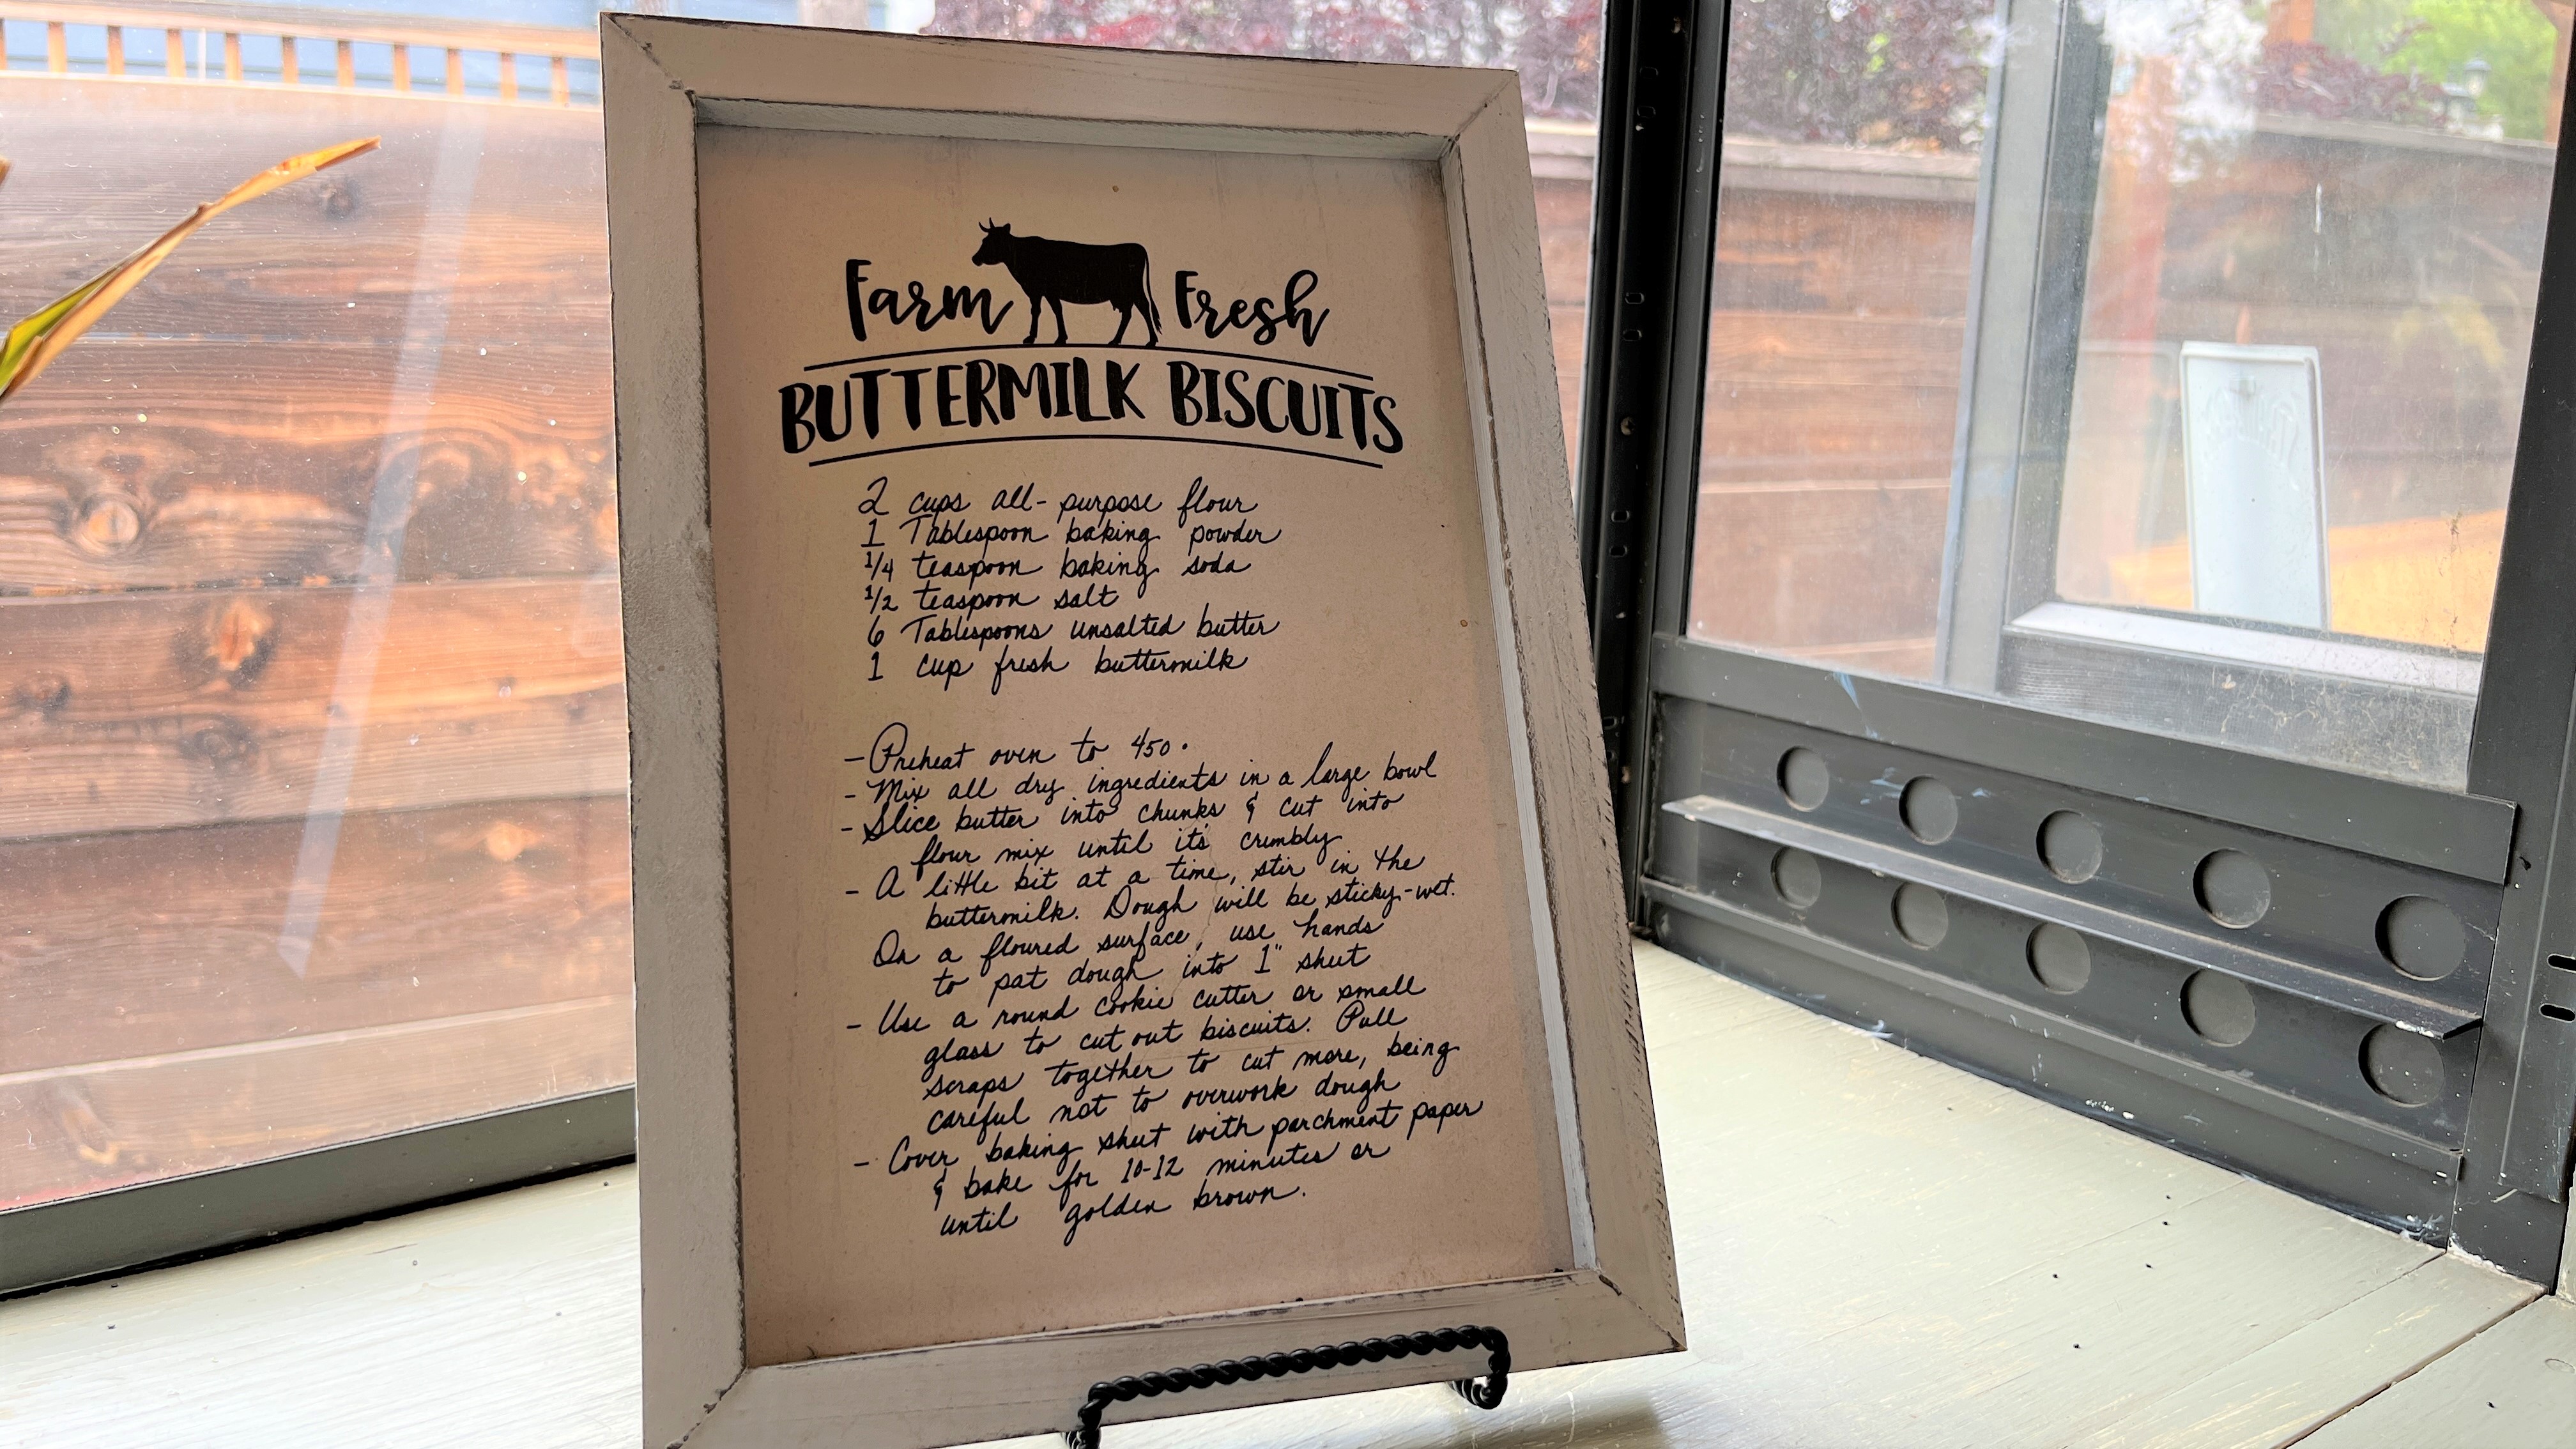 Farm Fresh
BUTTERMILK BISCUITS
2 cups all-purpose flour
1 Tablespoon baking powder
1/4 teaspoon baking soda
1/2 teaspoon salt
6 Tablespoons unsalted butter
1 cup fresh buttermilk
- Preheat oven to 450°
- Mix all dry ingredients in a large bowl
- Slice butter into chunks & cut into
flour mix until it's crumbly
- A little bit at a time, stir in the
buttermilk. Dough will be sticky-wet.
On a floured surface, use hands
to pat dough into 1" sheet
- Use a round cookie cutter or small
glass to cut out biscuits. Pull
scraps together to cut more, being
careful not to overwork dough
- Cover baking sheet with parchment paper
& bake for 10-12 minutes or
until golden brown.